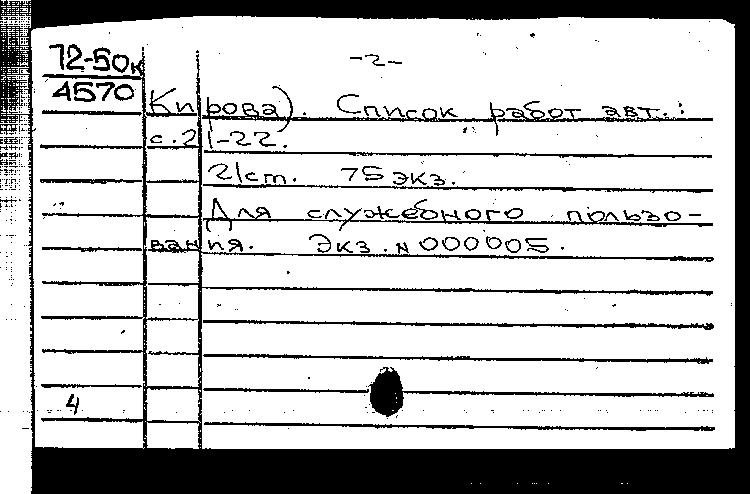 72-50к
-2-
4570
Кирова). Список работ авт.:
с.21-22.
21 ст. 75 экз.
Для служебного пользо-
вания. Экз. N 000005.
4